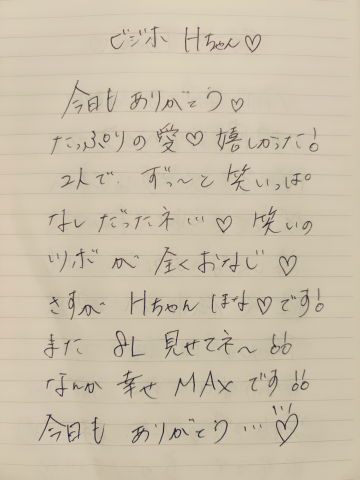 ビジホ Hちゃん♡
今日も ありがとう♡
たっぷりの 愛♡ 嬉しかった!
2人で ずっ〜と 笑いっぱ
なし だったネ…♡ 笑いの
ツボ が 全く おなじ ♡
さすが Hちゃん ほな♡です!
また 8L 見せてネ〜!!
なんか 幸せ MAX です!!
今日も ありがとう …♡